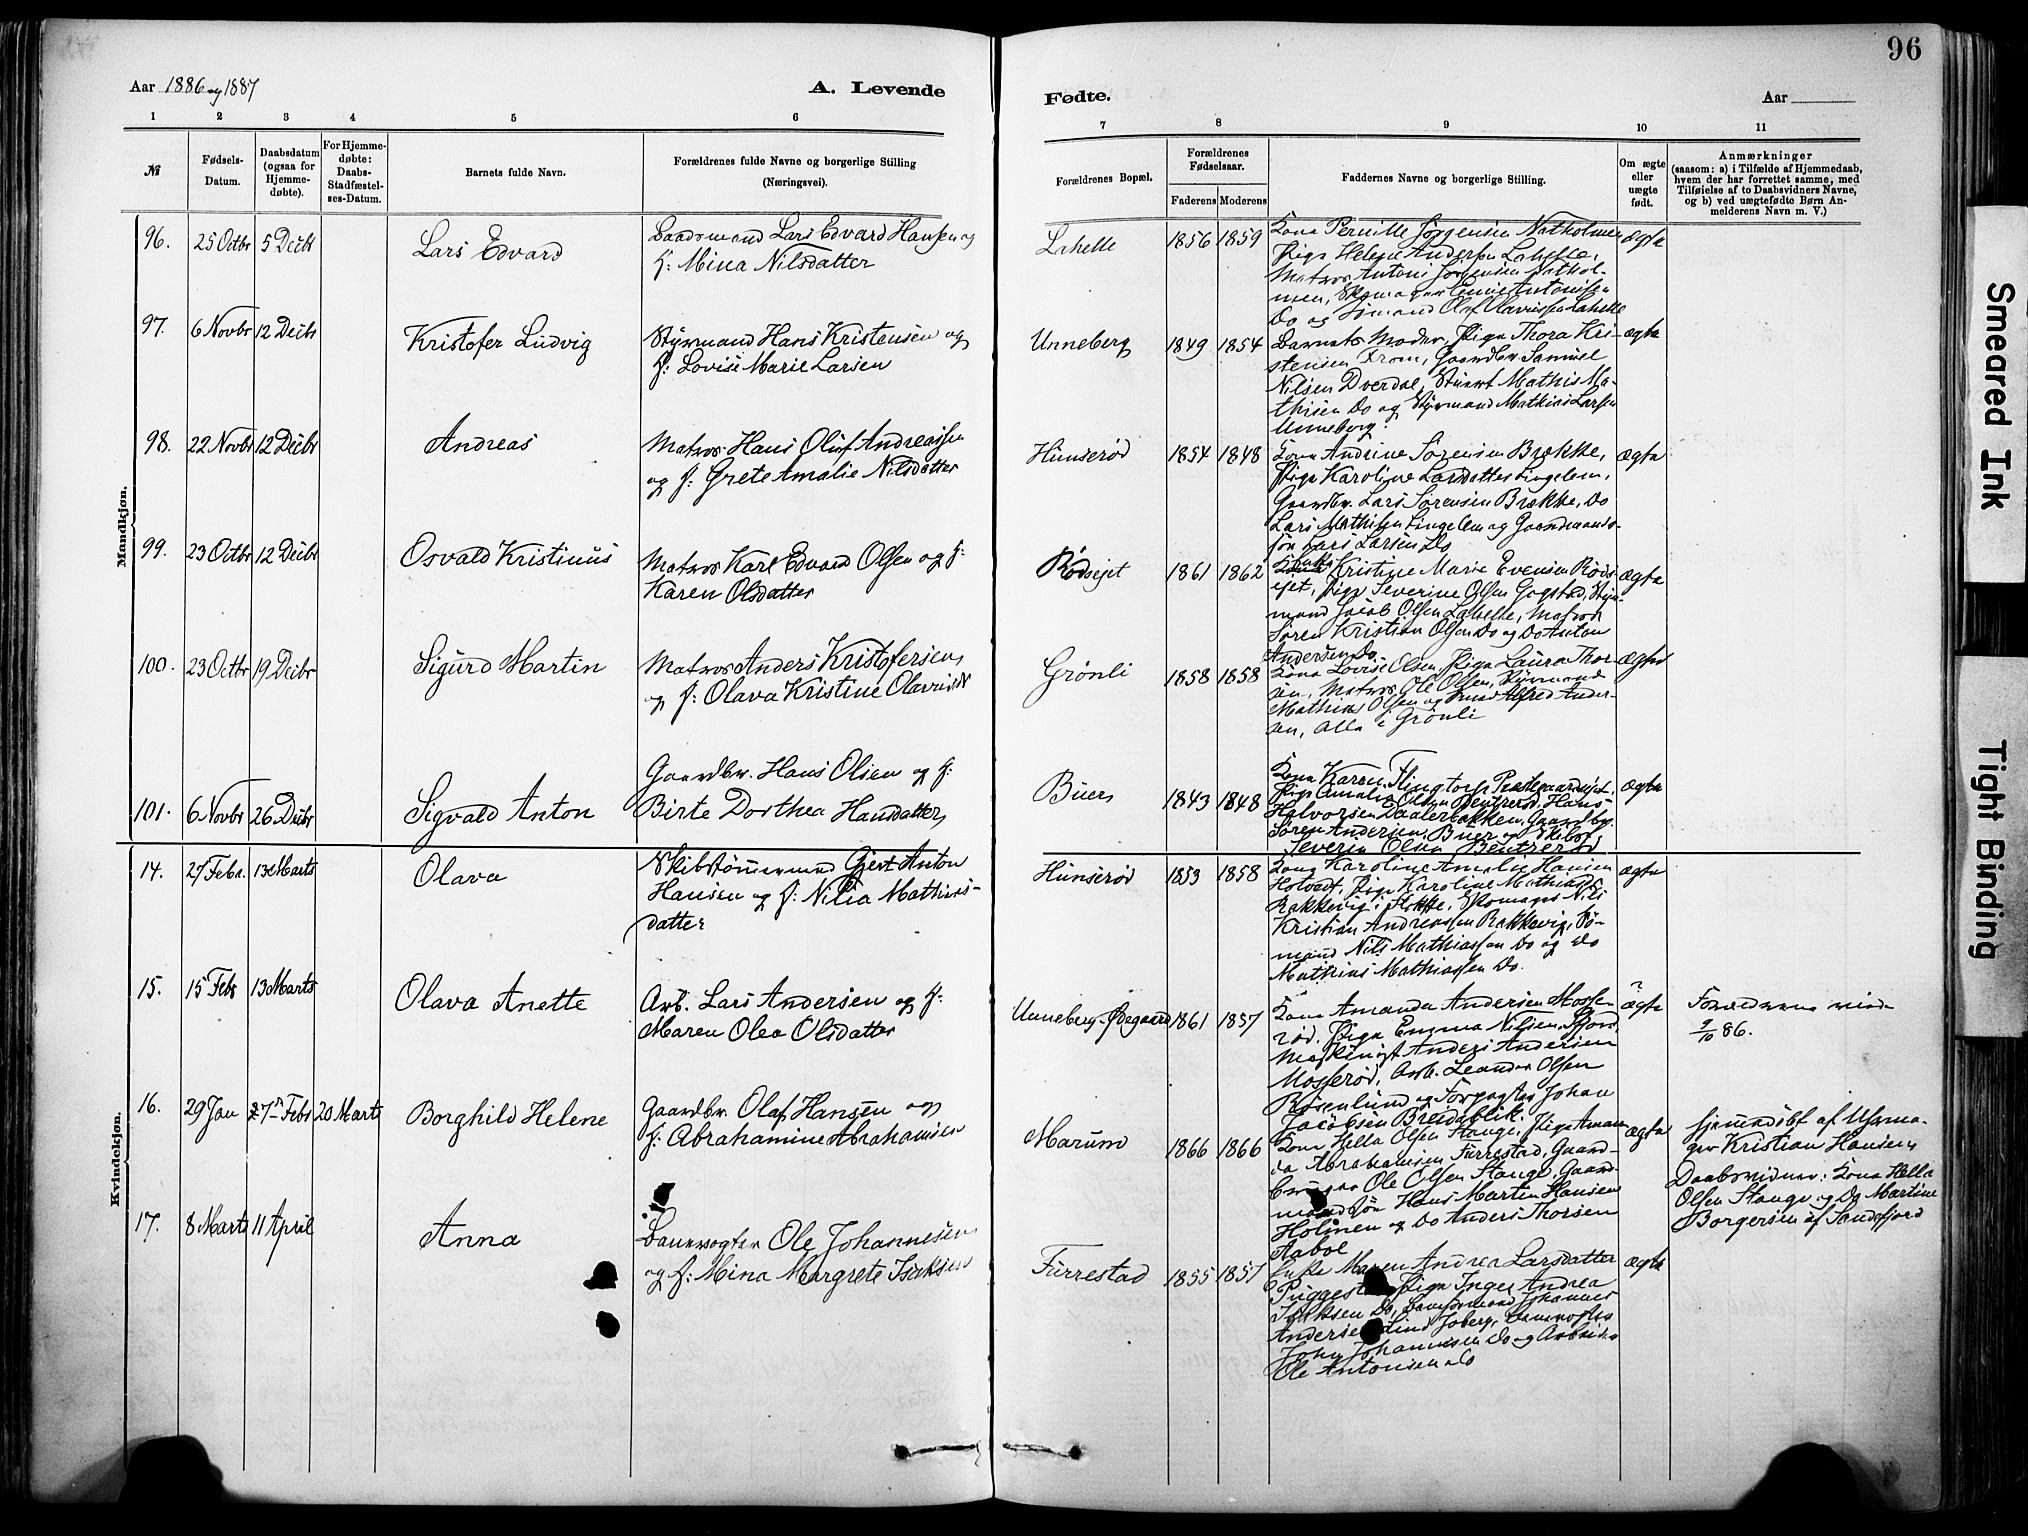 96
Aar 1886 og 1887
A. Levende
Fødte.
Aar
1 2 3 4 5 6 7 8 9 10 11
№
Fødsels-
Datum.
Daabsdatum
(ogsaa for
Hjemme-
døbte).
For Hjemme-
døbte:
Daabs-
Stadfæstel-
ses-Datum.
Barnets fulde Navn.
Forældrenes fulde Navne og borgerlige Stilling
(Næringsvei).
Forældrenes Bopæl.
Forældrenes
Fødselsaar.
Faderens Moderens
Faddernes Navne og borgerlige Stilling.
Om ægte
eller
uægte
født.
Anmærkninger
(saasom: a) i Tilfælde af Hjemmedaab,
hvem der har forrettet samme, med
Tilføielse af to Daabsvidners Navne,
og b) ved uægtefødte Børn An-
melderens Navn m. V.)
Mandkjøn.
96. 25 Octbr 5 Decbr Lars Edvard
Baadsmand Lars Edvard Hansen og
f: Mina Nilsdatter
Lahelle 1856 1859
Kona Pernille Jørgensen Natholmen
Pige Helene Andersen Lahelle,
Matros Antoni Jørgensen Nathol-
men, Skomager Antonisen
Do og Sømand Olaf Olavessen Lahelle
ægte
97. 6 Novbr 12 Decbr Kristofer Ludvig
Styrmand Hans Kristensen og
f: Lovise Marie Larsen
Unneberg 1849 1854
Barnets Moder, Pige Thora Kri-
stensen From, Gaardbr Samuel
Nilsen Dverdal, Stuert Mathis Ma-
thisen Do og Styrmand Mathias Larsen
Unneberg.
ægte
98. 22 Novbr 12 Decbr Andreas
Matros Hans Oluf Andreassen
og f: Grete Amalie Nilsdatter
Hunserød 1854 1848
Kona Andrine Sørensen Brække,
Pige Karoline Larsdatter Lingelem,
Gaardbr. Lars Sørensen Brække, Do
Lars Mathisen Lingelem og Gaardmands-
søn Lars Larsen Do
ægte
99. 23 Octbr 12 Decbr Osvald Kristinus
Matros Karl Edvard Olsen og f:
Karen Olsdatter
Rødsejet 1861 1862
Kristine Marie Evensen Røds-
ejet, Pige Severine Olsen Gogstad, Styr-
mand Jacob Olsen Lahelle, Matros
Søren Kristian Olsen Do og Do Anton
Andersen Do
ægte
100. 23 Octbr 19 Decbr Sigurd Martin
Matros Anders Kristofersen
og f: Olava Kristine Olavesdt
Grønli 1858 1858
Kona Lovise Olsen, Pige Laura Thor-
sen, Matros Ole Olsen, Styrmand
Mathias Olsen og Alfred Ander-
sen, Alle i Grønli
ægte
101. 6 Novbr 26 Decbr Sigvald Anton
Gaardbr. Hans Olsen og f:
Birte Dorthea Hansdatter
Buer 1843 1848
Kona Karen Flingtorp Præstegaardsejet,
Pige Amalie Olsen Bentserød, Hans
Halvorsen Daalerbakken, Gaardbr.
Søren Andersen Buer og Skibst.
Severin Olsen Bentserød
ægte
Kvindekjøn.
14. 27 Febr. 13 Marts Olava
Skibstømmermand Gjert Anton
Hansen og f: Nilia Mathias-
datter
Hunserød 1853 1858
Kona Karoline Amalie Hansen
Holvedt, Pige Karoline Mathiasdt
Rakkevig i Stokke, Skomager Nils
Kristian Andreassen Rakkevig, Sø-
mand Nils Mathiassen Do og Do
Mathias Mathiassen Do.
ægte
15. 15 Febr 13 Marts Olava Anette
Arb. Lars Andersen og f:
Maren Olea Olsdatter
Unneberg-Ødegaard 1861 1857
Kona Amanda Andersen Mosse-
rød, Pige Emma Nilsen Fjord,
Maskinist Anders Andersen
Mosserød, Arb. Leander Olsen
Rosenlund og Forpagter Johan
Jacobsen Bredablik.
ægte
Forældrene viede
9/10 86.
16. 29 Jan 27de Febr 20 Marts Borghild Helene
Gaardbr. Olaf Hansen og
f: Abrahamine Abrahamsen
Marum 1866 1866
Kona Hella Olsen Stange, Pige Aman-
da Abrahamsen Furrestad, Gaard-
bruger Ole Olsen Stange, Gaard-
mandssøn Hans Martin Hansen
Holmen og Do Anders Thorsen
Aabol
ægte
hjemmedøbt af Uhrma-
ger Kristian Hansen
Daabsvidner: Kona Hella
Olsen Stange og Do Martine
Borgersen af Sandefjord
17. 8 Marts 11 April Anna
Banevogter Ole Johannesen
og f: Mina Margrete Isaksen
Furrestad 1855 1857
Enke Maren Andrea Larsdatter
Pige Inger Andrea
Isaksen Do, Baneformand Johannes
Anderse Lind Joberg, Banevogter
John Johannesen Do og Arbeider
Ole Antonisen Do
ægte
Smeared Ink
Tight Binding